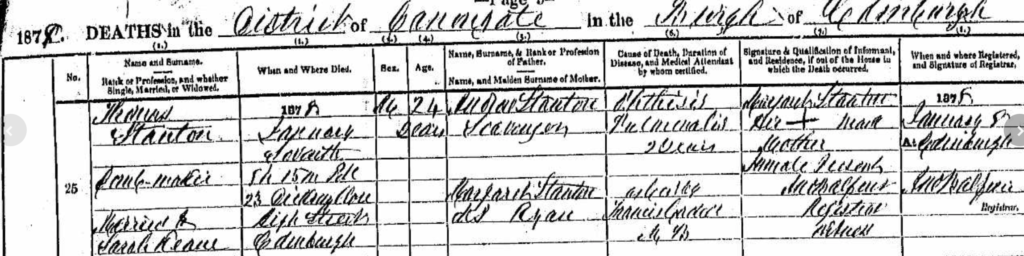 1878. DEATHS in the District of Canongate in the Burgh of Edinburgh
(1.) (1.) (3.) (4.) (6.) (7.) (1.)
No. Name and Surname. Rank or Profession, and whether Single, Married, or Widowed.
When and Where Died.
Sex.
Age.
Name, Surname, & Rank or Profession of Father. Name, and Maiden Surname of Mother.
Cause of Death, Duration of Disease, and Medical Attendant by whom certified.
Signature & Qualification of Informant, and Residence, if out of the House in which the Death occurred.
When and where Registered, and Signature of Registrar.
25
Thomas
Stanton
Comb-maker
Married to
Sarah Keane
1878
January
Seventh
5h 15m P.M.
23
Close
High Street
Edinburgh
M
24
Years
Andrew Stanton
Scavenger
Margaret Stanton
M.S. Ryan
Phthisis
Pulmonalis
2 Years
as cert by
Francis
M.B.
Margaret Stanton
Her + mark
Mother
Present
Registrar
Witness
1878
January 8
At Edinburgh
Registrar.